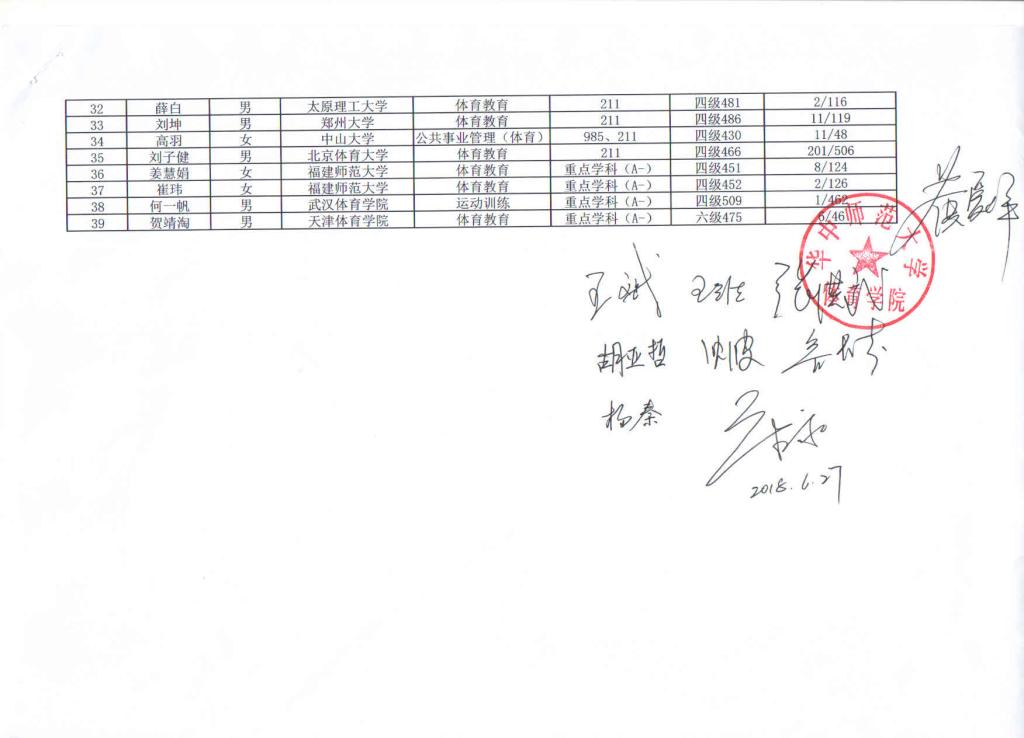 32 薛白 男 太原理工大学 体育教育 211 四级481 2/116
33 刘坤 男 郑州大学 体育教育 211 四级486 11/119
34 高羽 女 中山大学 公共事业管理（体育） 985、211 四级430 11/48
35 刘子健 男 北京体育大学 体育教育 211 四级466 201/506
36 姜慧娟 女 福建师范大学 体育教育 重点学科（A-） 四级451 8/124
37 崔玮 女 福建师范大学 体育教育 重点学科（A-） 四级452 2/126
38 何一帆 男 武汉体育学院 运动训练 重点学科（A-） 四级509 1/462
39 贺靖淘 男 天津体育学院 体育教育 重点学科（A-） 六级475
华中师范大学
体育学院
王斌
胡亚哲
杨秦
2018.6.27